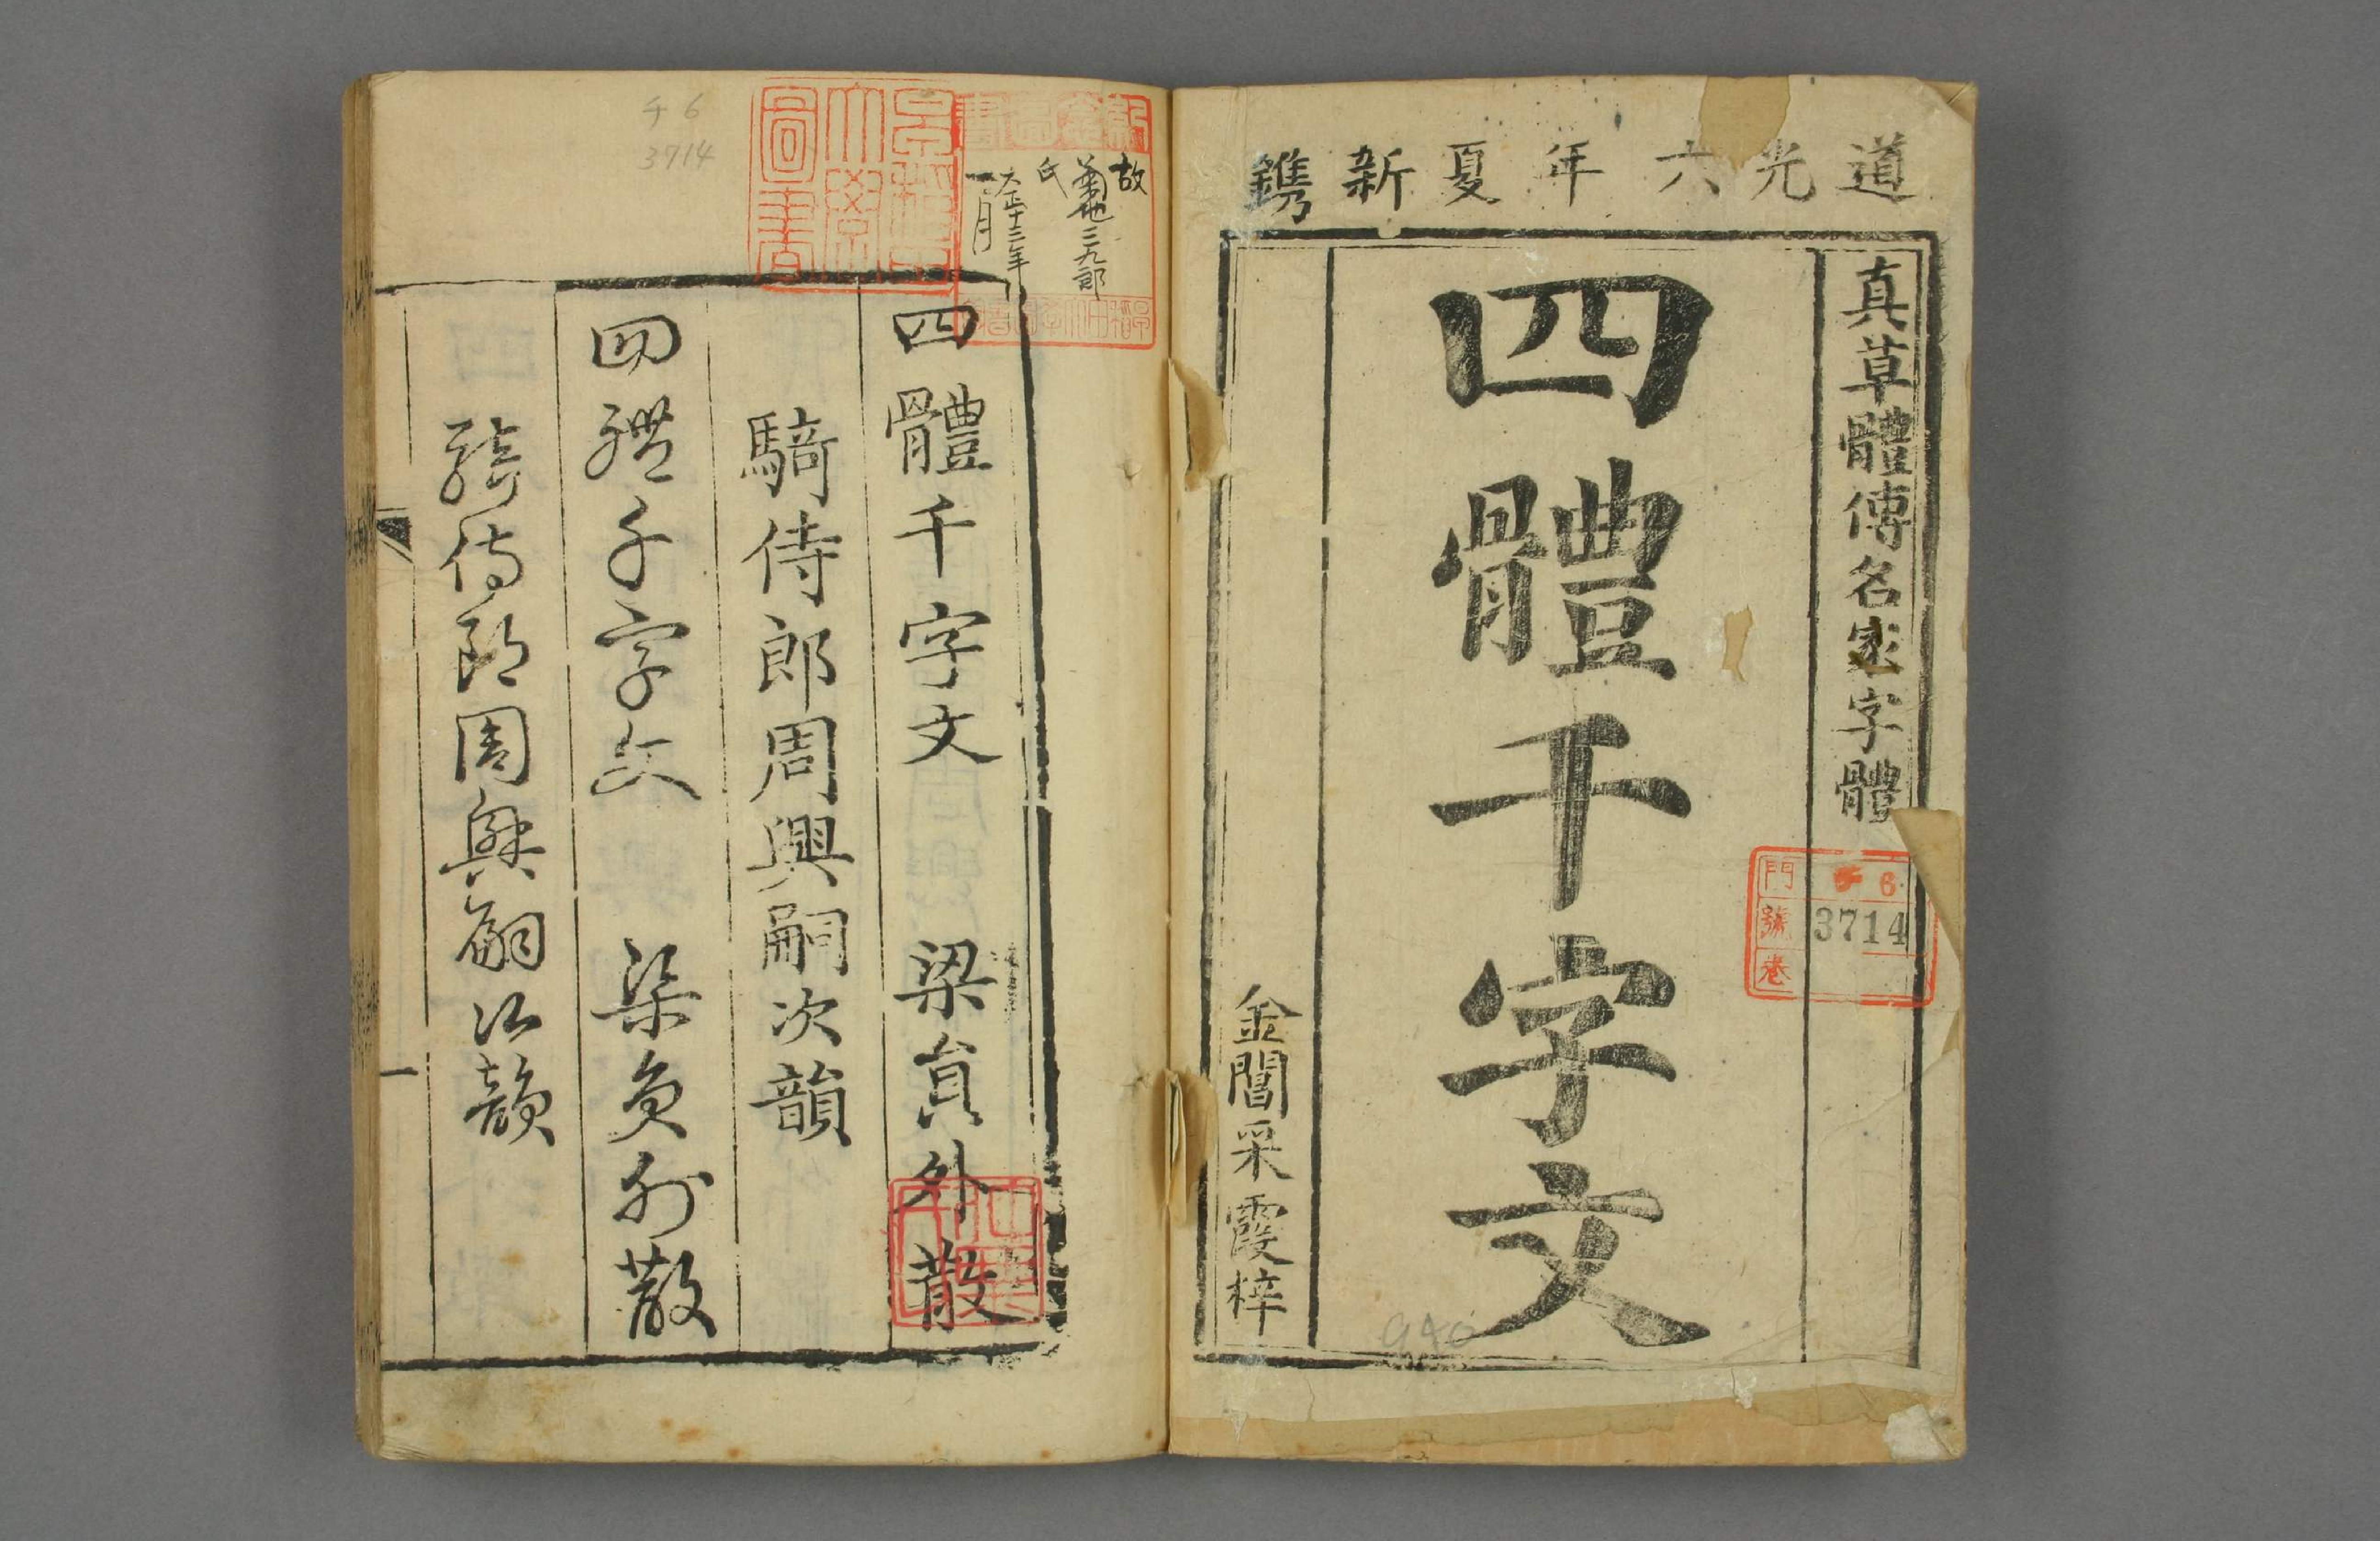 道光六年夏新鐫
真草體傳名家字體
四體千字文
金閶采霞梓
門 チ 6
號 3714
卷
940
チ 6
3714
故
菊地三九郎
氏
大正十二年
一月
早稲田大學圖書
四體千字文 梁貟外散
騎侍郎周興嗣次韻
四體千字文 梁貟外散
騎侍郎周興嗣次韻
一